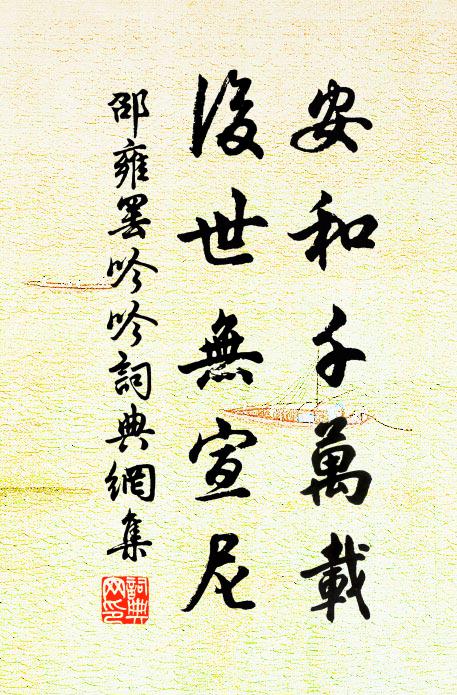 安和千萬載
後世無宣尼
邵雍罢吟吟詞典網集
詞典
网印